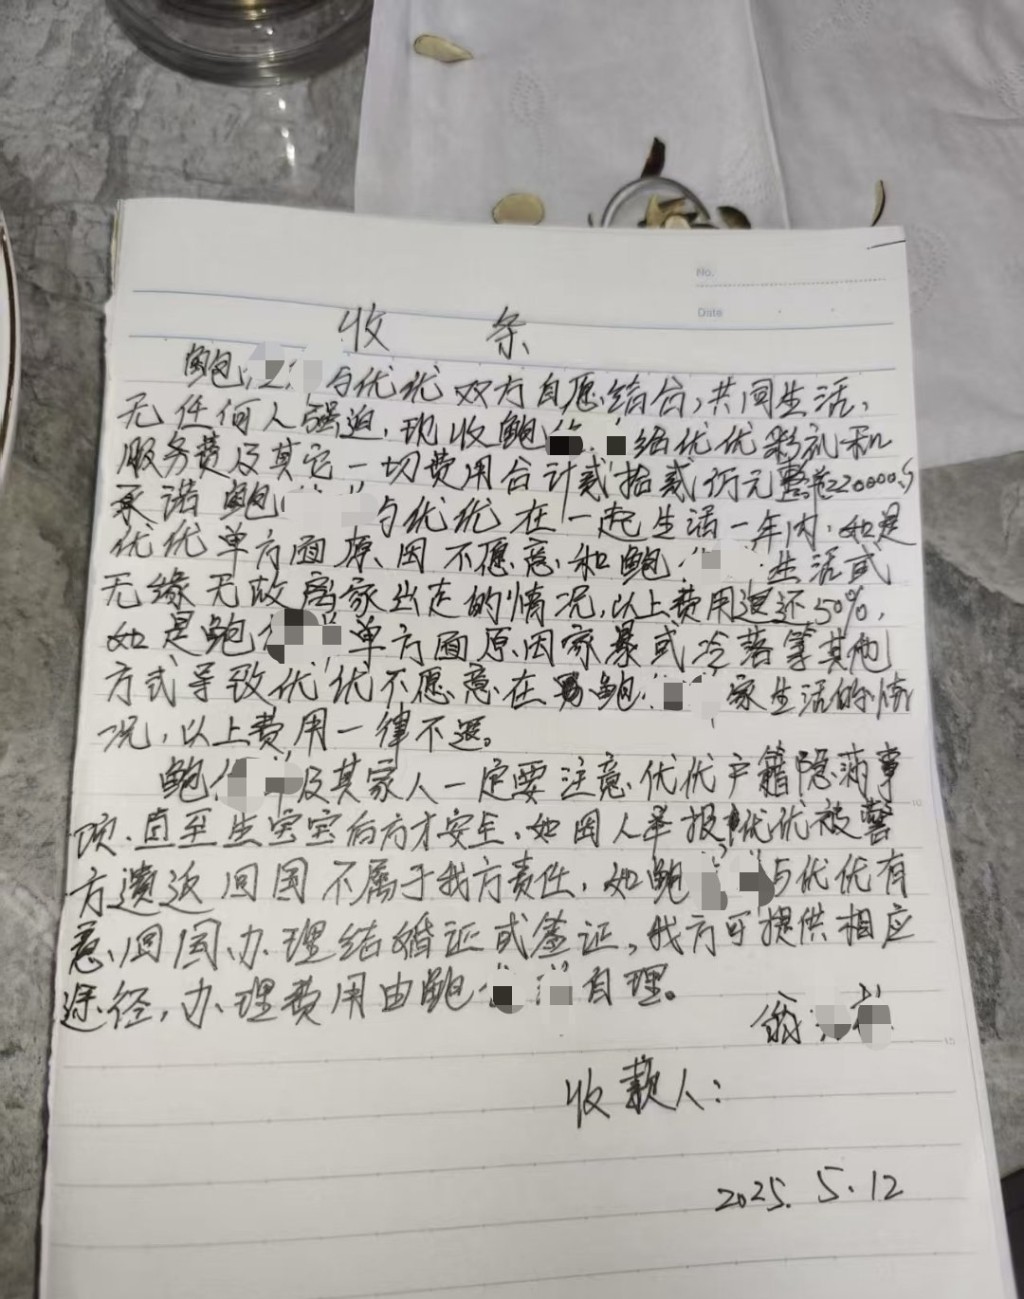 No.
Date
收 条
鲍 与优优双方自愿结合,共同生活,
无任何人强迫,现收鲍 给优优彩礼和
服务费及其它一切费用合计贰拾贰仟元整
承诺鲍 与优优在一起生活一年内,如是
优优单方面原因不愿意和鲍 生活或
无缘无故离家出走的情况,以上费用退还50%,
如是鲍 单方面原因家暴或冷落等其他
方式导致优优不愿意在 鲍 家生活的情
况,以上费用一律不退。
鲍 及其家人一定要注意优优户籍隐满事
项,直至生宝宝后方才安全,如因人举报优优被警
方遗返回国不属于我方责任,如鲍 与优优有
意回国办理结婚证或签证,我方可提供相应
途径,办理费用由鲍 自理。
翁
收款人:
2025.5.12